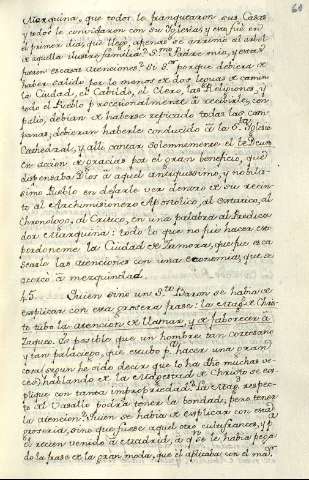 60
Marquina, que todos le franquearon sus Casas
y todos le convidaron con su Iglesias y esto fué en
el primer dia, que llegó, apenas se arrimó al arbol
de aquella ilustre familia? Smo Padre mio, y estas
fueron escasas atenciones? Si Sr porque debiera de
haber salido por lo menos dos leguas de camino
la Ciudad, el Cabildo, el Clero, las Religiones, y
todo el Pueblo procesionalmente à recibirle, con
palio, debian de haberse repicado todas las cam-
panas, debieran haberle conducido à la Sta Iglesia
Cathedral, y alli cantar solemnemente el te Deum
en accion de gracias por el gran beneficio, que
dispensaba Dios à aquel antiquissimo, y nobilis-
simo Pueblo en dejarle ver dentro de su recin-
to al Archimisionero Apostolico, al estatico, al
Chronologo, al Critico, en una palabra al Predica-
dor Marquina: todo lo que no fué hacer esto
perdoneme la Ciudad de Zamora, que fue es-
casearle las atenciones con una economia, que se
acercó à mezquindad.
45. Quien sino un Sr Baron se habia de
explicar con esta grosera frase: la Magd de Chris-
to tubo la atencion de llamar, y de faborecer à
Zaqueo. Es posible que un hombre tan cortesano
y tan palaciego, que estubo pa hacer una gran
cosa (segun he oido decir que lo ha dho muchas ve-
ces) hablando de la Magestad de Christo se ex-
plique con tanta impropriedad? La Magd respec-
to del Vasallo podrá tener la bondad, pero tener
la atencion? Quien se habia de explicar con esta
groseria, sino que fuese aquel otro
el recien venido à Madrid, à qn se le habia pega-
do la frase de la gran moda, que el aplicaba con el mayr